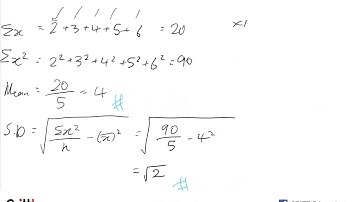 Σx = 2+3+4+5+6 = 20
Σx² = 2²+3²+4²+5²+6² = 90
Mean = 20/5 = 4 #
S.D = √(Σx²/n − (x̄)²) = √(90/5 − 4²)
= √2 #